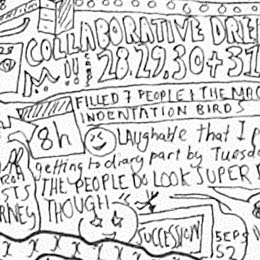 COLLABORATIVE DRE
M!! 28.29.30+31
FILLED 7 PEOPLE & THE MAC
INDENTATION BIRDS
8h
LAUGHABLE that I p
getting to diary part by Tuesda
THE PEOPLE DO LOOK SUPER
THOUGH
STS
RNEY
SUCCESSION
5EPS
S2